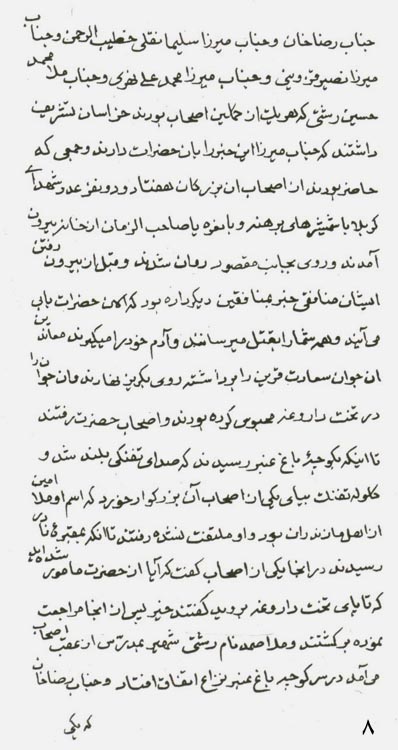 جناب رضاخان و جناب میرزا سلیمانقلی خطیب الرحمن و جناب
میرزا نصیر قزوینی و جناب میرزا محمد علی نهری و جناب ملا محمد
حسین رشتی که هر یک از کملین اصحاب بودند خراسان تشریف
داشتند که جناب میرزا این خبر را بان حضرات دارند و جمعی که
حاضر بودند از اصحاب ان بزرگان هفتاد و دو نفر عدد شهدای
کربلا با شمشیرهای برهنه و با نعره یا صاحب الزمان از خانه بیرون
آمدند و روی بجانب مقصود روان شدند و قبل از بیرون رفتن
ایشان منافقی خبر بمنافقین دیگر داده بود که الان حضرات بابی
می آیند و همه شما را بقتل میرسانند و آدم خود را میگیرند معاندین
ان جوان سعادت قرین را برداشته روی بگریز نهادند و ان جوان را
در تحت داروغه محبوس کرده بودند و اصحاب حضرت رفتند
تا اینکه بکوچهٔ باغ عنبر رسیدند که صدای تفنگی بلند شد و
گلوله تفنگ بپای یکی از اصحاب آن بزرگوار خورد که اسم او ملا امین
از اهل مازندران بود و او ملتفت نشده رفتند تا آنکه بمقبرهٔ نادر
رسیدند در انجا یکی از اصحاب گفت که آیا از حضرت مامور شده اید
که تا پای تحت داروغه بروید گفتند خیر پس از انجا مراجعت
نموده برگشتند و ملا احمد نام رشتی شهیر بمدرّس از عقب اصحاب
می آمد در سر کوچه باغ عنبر نزاع اتفاق افتاد و جناب رضاخان
که یکی
۸